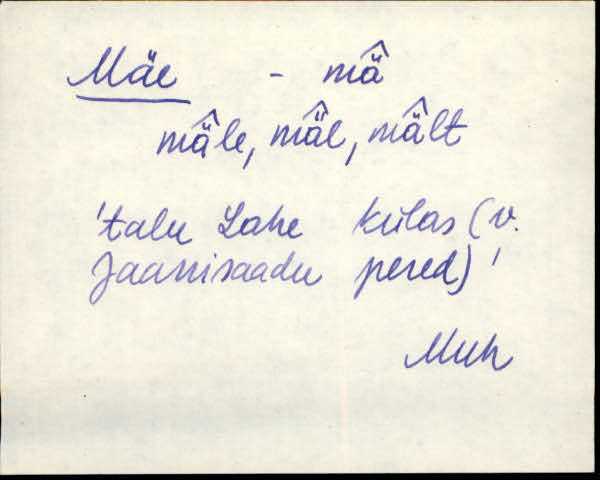 Mäe - mä̂
mä̂le, mä̂l, mä̂lt
'talu Lahe külas (v.
Jaanisaadu pered)'
Muh